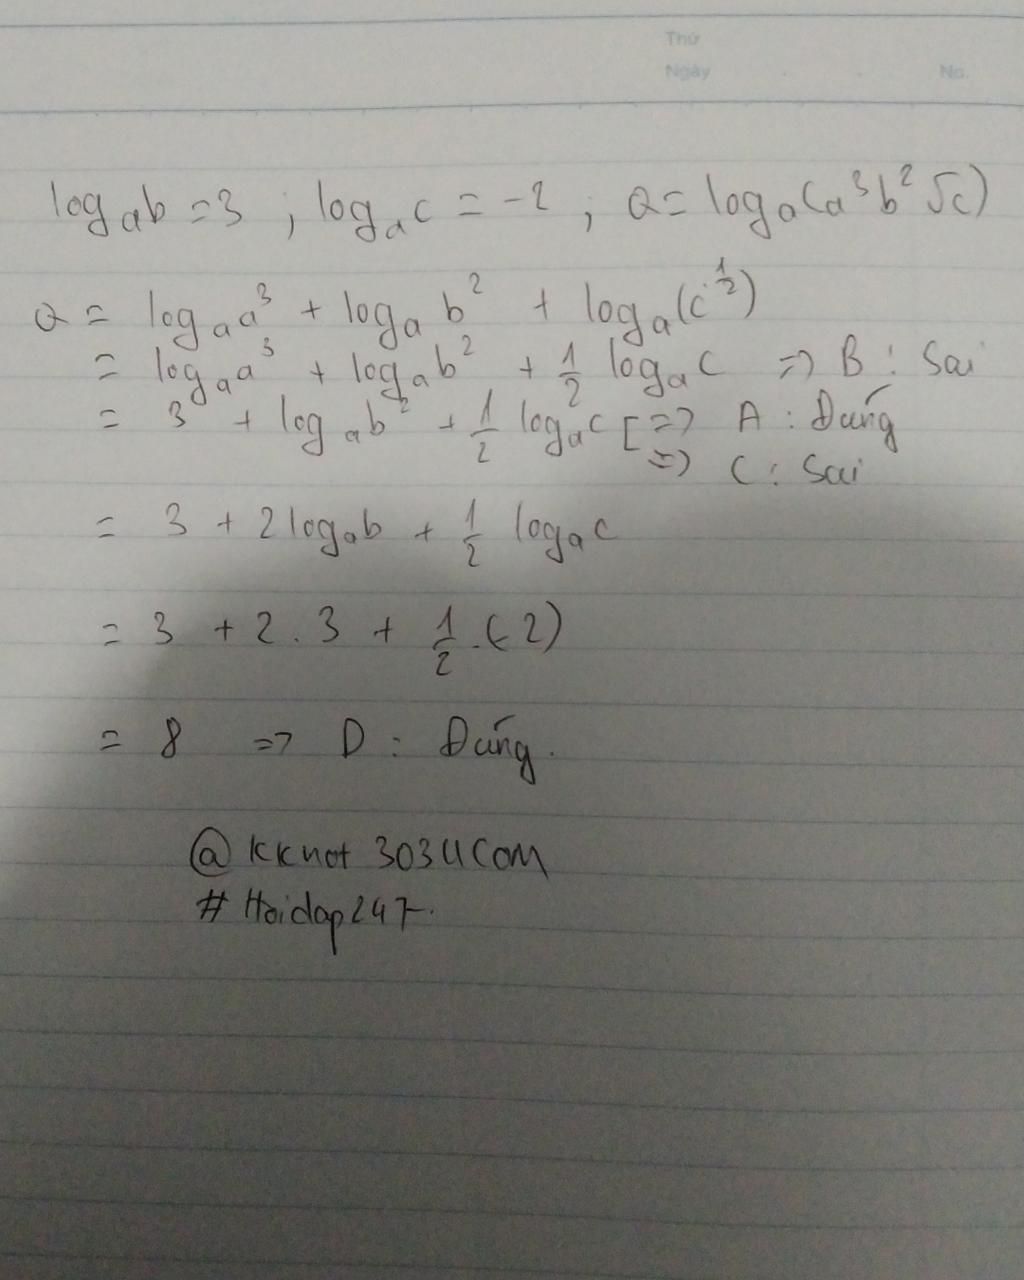 Thứ
Ngày No.
log_a b = 3 ; log_a c = -2 ; Q = log_a (a³b²√c)
Q = log_a a³ + log_a b² + log_a (c^½)
= log_a a³ + log_a b² + ½ log_a c => B : Sai
= 3 + log_a b² + ½ log_a c [=> A : Đúng
=> C : Sai
= 3 + 2log_a b + ½ log_a c
= 3 + 2 . 3 + ½ . (-2)
= 8 => D : Đúng.
@ kknot 3034COM
# Hoidap247.